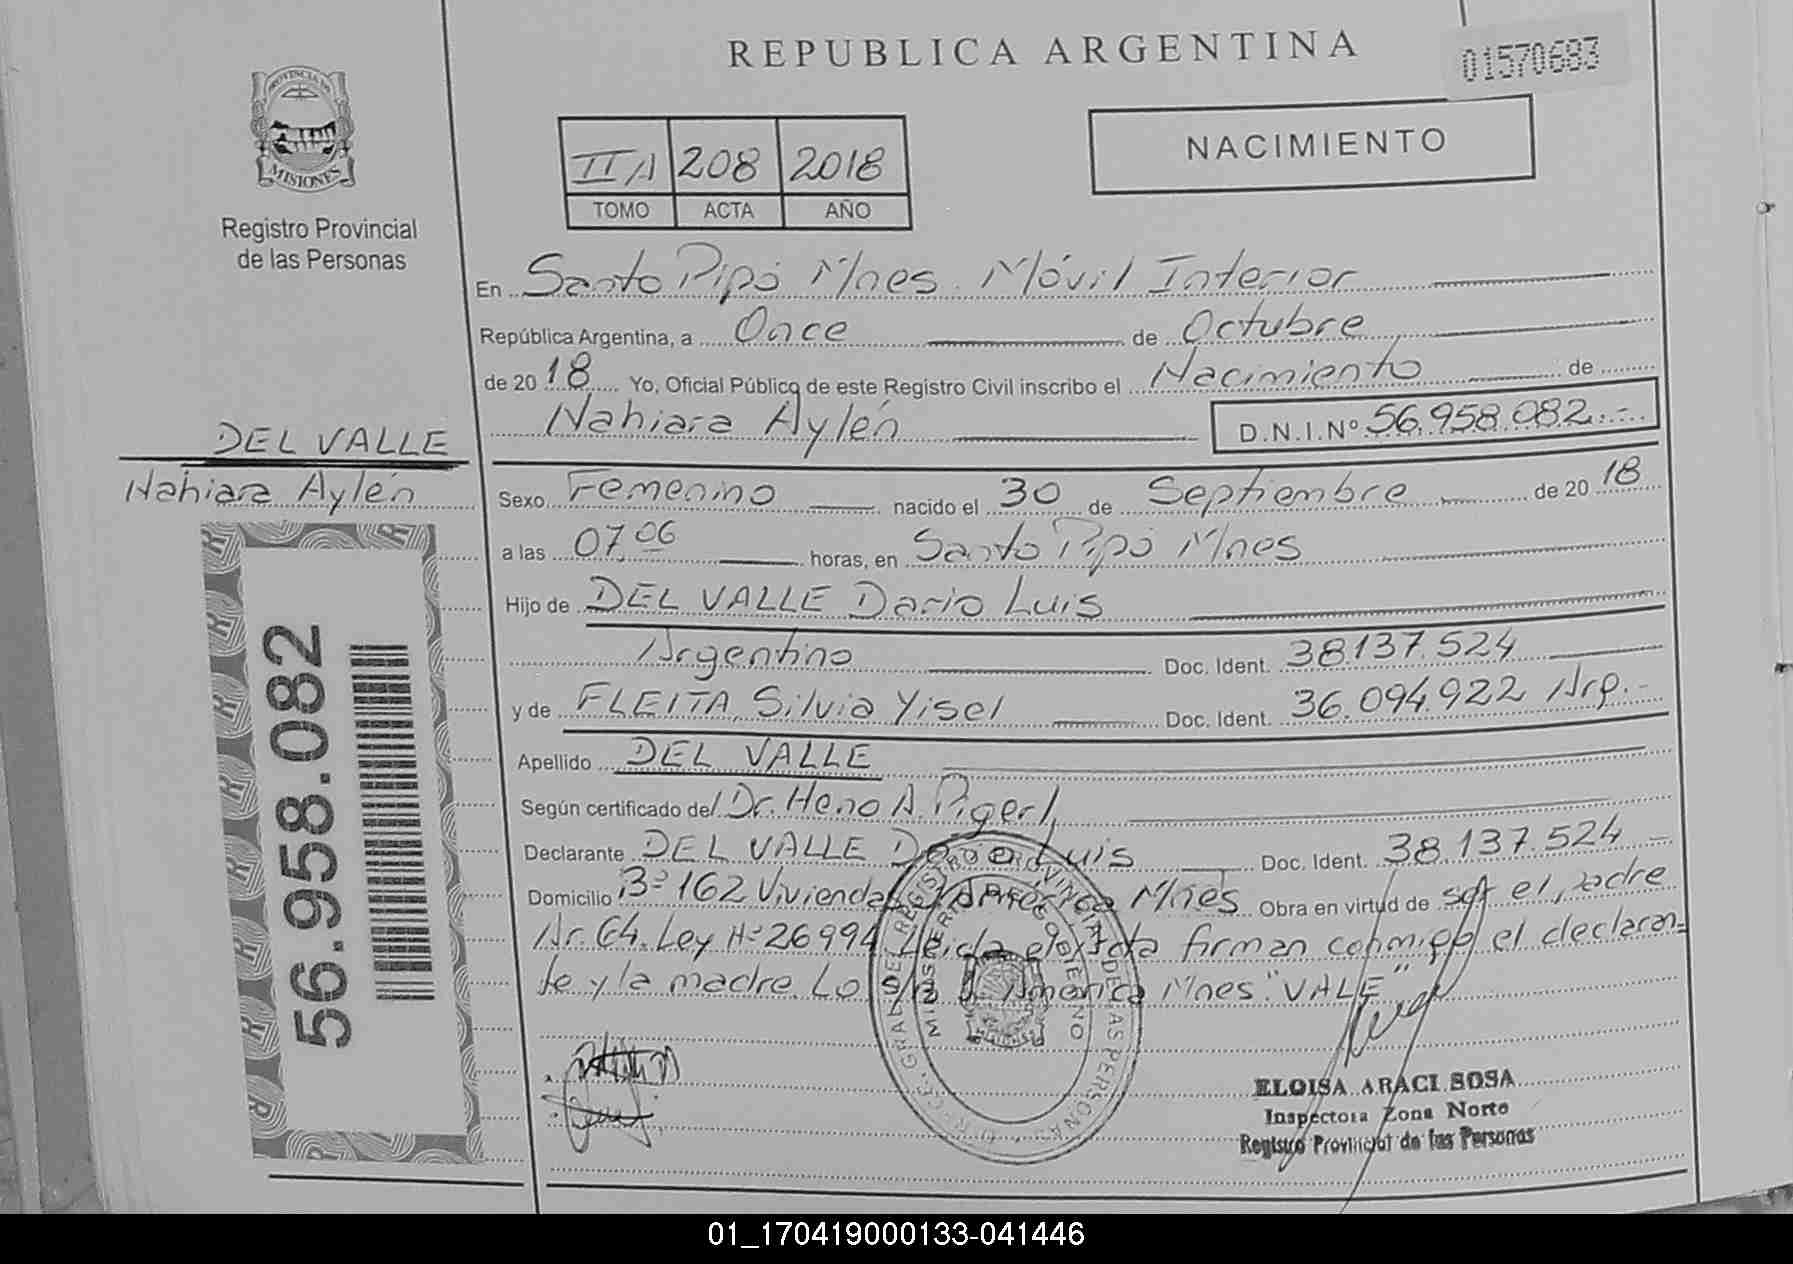 REPUBLICA ARGENTINA
01570683
PROVINCIA DE
MISIONES
Registro Provincial
de las Personas
IIA 208 2018
TOMO ACTA AÑO
NACIMIENTO
En Santo Pipó Mnes. Móvil Interior
República Argentina, a Once de Octubre
de 2018 Yo, Oficial Público de este Registro Civil inscribo el Nacimiento de
Nahiara Aylén D.N.I.Nº 56.958.082.-.
DEL VALLE
Nahiara Aylén
Sexo Femenino nacido el 30 de Septiembre de 2018
a las 07.06 horas, en Santo Pipó Mnes
Hijo de DEL VALLE Dario Luis
Argentino Doc. Ident. 38.137.524
y de FLEITA, Silvia Yisel Doc. Ident. 36.094.922 Arg.-
Apellido DEL VALLE
Según certificado del Dr. Heno A. Pigerl,
Declarante DEL VALLE Dario Luis Doc. Ident. 38.137.524
Domicilio Bº 162 Viviendas Jº América Mnes Obra en virtud de ser el padre
Ar. 64. Ley Nº 26994 Leída el acta firman conmigo el declaran-
te y la madre. Lo s/b J. América Mnes. "VALE"
56.958.082
ELOISA ARACI SOSA
Inspectora Zona Norte
Registro Provincial de las Personas
01_170419000133-041446